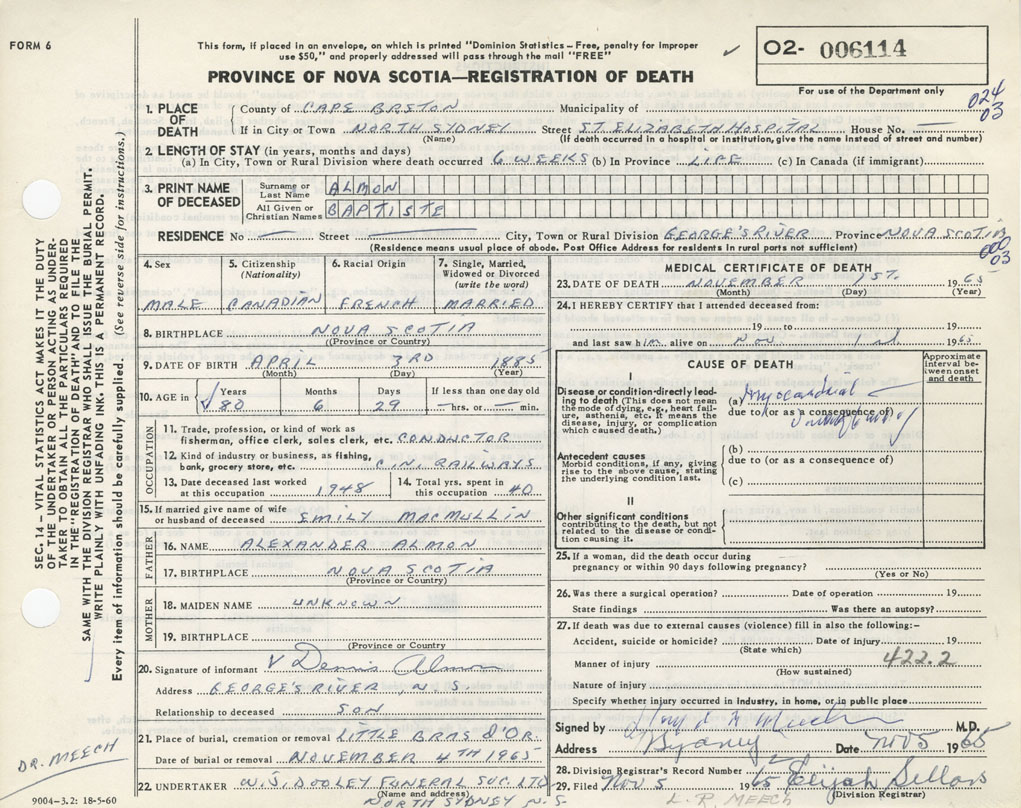 FORM 6
This form, if placed in an envelope, on which is printed "Dominion Statistics – Free, penalty for improper
use $50," and properly addressed will pass through the mail "FREE"
O2- 006114
PROVINCE OF NOVA SCOTIA—REGISTRATION OF DEATH
For use of the Department only
024
03
1. PLACE OF DEATH
County of CAPE BRETON Municipality of
If in City or Town NORTH SYDNEY Street ST. ELIZABETH HOSPITAL House No. —
(Name) (If death occurred in a hospital or institution, give the name instead of street and number)
2. LENGTH OF STAY (in years, months and days)
(a) In City, Town or Rural Division where death occurred 6 WEEKS (b) In Province LIFE (c) In Canada (if immigrant)
3. PRINT NAME OF DECEASED
Surname or Last Name ALMON
All Given or Christian Names BAPTISTE
RESIDENCE No — Street — City, Town or Rural Division GEORGE'S RIVER Province NOVA SCOTIA
(Residence means usual place of abode. Post Office Address for residents in rural parts not sufficient)
000
03
4. Sex 5. Citizenship (Nationality) 6. Racial Origin 7. Single, Married, Widowed or Divorced (write the word)
MALE CANADIAN FRENCH MARRIED
8. BIRTHPLACE NOVA SCOTIA
(Province or Country)
9. DATE OF BIRTH APRIL 3RD 1885
(Month) (Day) (Year)
10. AGE in Years Months Days If less than one day old
80 6 29 — hrs. or — min.
OCCUPATION
11. Trade, profession, or kind of work as
fisherman, office clerk, sales clerk, etc. CONDUCTOR
12. Kind of industry or business, as fishing,
bank, grocery store, etc. C.N. RAILWAYS
13. Date deceased last worked at this occupation 1948
14. Total yrs. spent in this occupation 40
15. If married give name of wife
or husband of deceased EMILY MACMULLIN
FATHER
16. NAME ALEXANDER ALMON
17. BIRTHPLACE NOVA SCOTIA
(Province or Country)
MOTHER
18. MAIDEN NAME UNKNOWN
19. BIRTHPLACE
(Province or Country)
20. Signature of informant Dennis Almon
Address GEORGE'S RIVER, N.S.
Relationship to deceased SON
21. Place of burial, cremation or removal LITTLE BRAS D'OR
Date of burial or removal NOVEMBER 4TH 1965
22. UNDERTAKER W.J. DOOLEY FUNERAL SVC. LTD
(Name and address)
NORTH SYDNEY N.S.
MEDICAL CERTIFICATE OF DEATH
23. DATE OF DEATH NOVEMBER 1ST. 1965
(Month) (Day) (Year)
24. I HEREBY CERTIFY that I attended deceased from:
19 to 19
and last saw him alive on Nov 1st 1965
CAUSE OF DEATH
Approximate interval between onset and death
I
Disease or condition directly leading to death (This does not mean
the mode of dying, e.g., heart failure, asthenia, etc. It means the
disease, injury, or complication
which caused death.)
(a) Myocardial
due to (or as a consequence of)
Antecedent causes
Morbid conditions, if any, giving
rise to the above cause, stating
the underlying condition last.
(b)
due to (or as a consequence of)
(c)
II
Other significant conditions
contributing to the death, but not
related to the disease or condition causing it.
25. If a woman, did the death occur during
pregnancy or within 90 days following pregnancy?
(Yes or No)
26. Was there a surgical operation? Date of operation 19
State findings Was there an autopsy?
27. If death was due to external causes (violence) fill in also the following:–
Accident, suicide or homicide? Date of injury 19
(State which)
422.2
Manner of injury
(How sustained)
Nature of injury
Specify whether injury occurred in industry, in home, or in public place
Signed by Meech M.D.
Address Sydney Date Nov 5 1965
28. Division Registrar's Record Number
29. Filed Nov 5 1965 Elijah Sellars
(Division Registrar)
L. R. MEECH
SEC. 14 – VITAL STATISTICS ACT MAKES IT THE DUTY
OF THE UNDERTAKER OR PERSON ACTING AS UNDERTAKER TO OBTAIN ALL THE PARTICULARS REQUIRED
IN THE "REGISTRATION OF DEATH" AND TO FILE THE
SAME WITH THE DIVISION REGISTRAR WHO SHALL ISSUE THE BURIAL PERMIT.
WRITE PLAINLY WITH UNFADING INK. THIS IS A PERMANENT RECORD.
Every item of information should be carefully supplied. (See reverse side for instructions.)
DR. MEECH
9004–3.2: 18-5-60